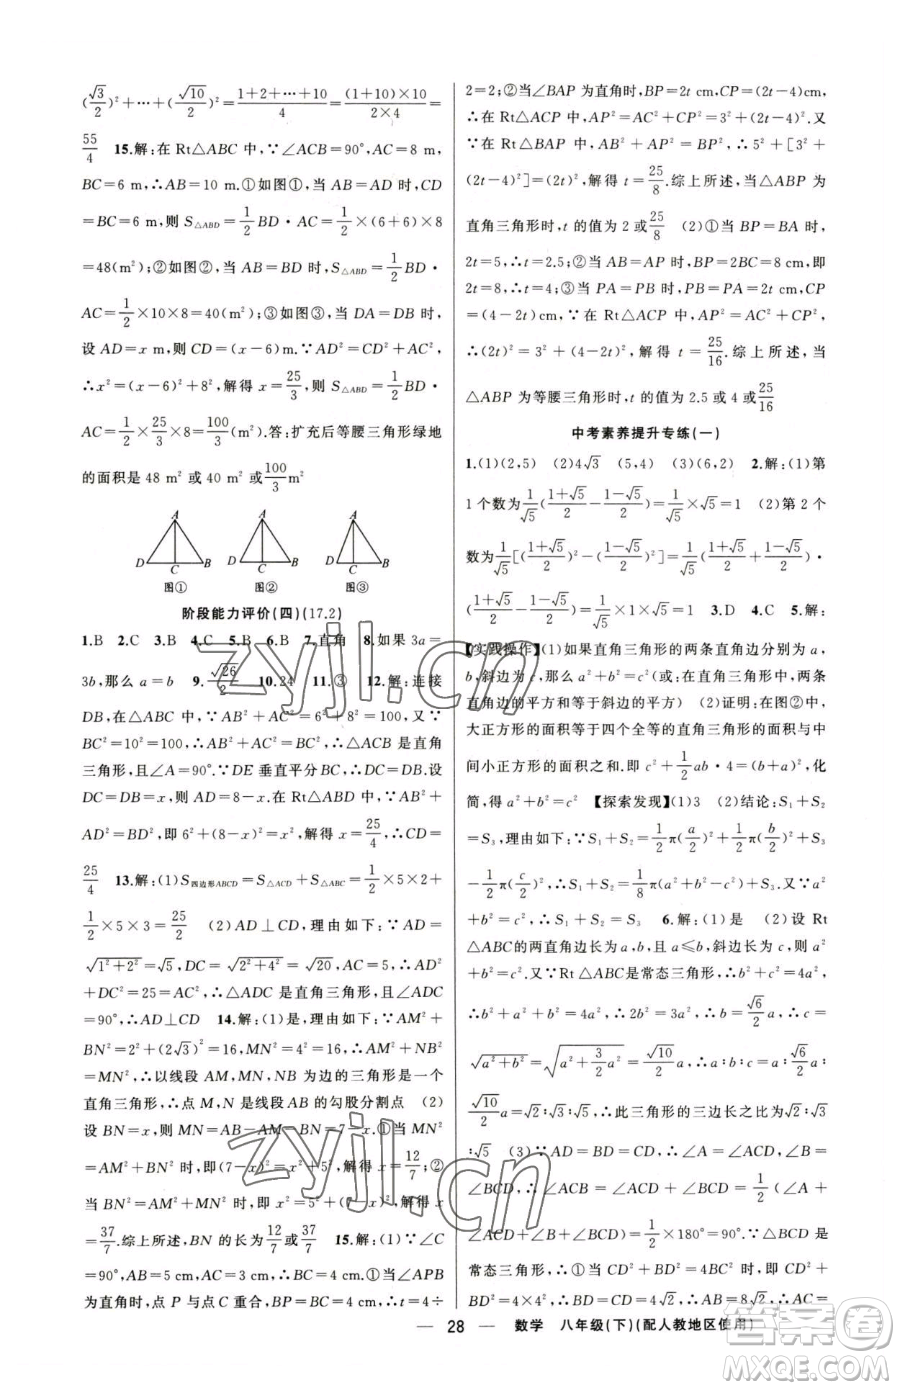 (√3/2)²+…+(√10/2)²=(1+2+…+10)/4=((1+10)×10)/(2×4)=
55/4　15.解:在 Rt△ABC 中,∵∠ACB=90°,AC=8 m,
BC=6 m,∴AB=10 m.①如图①,当 AB=AD 时,CD
=BC=6 m,则 S△ABD=1/2BD·AC=1/2×(6+6)×8
=48(m²);②如图②,当 AB=BD 时,S△ABD=1/2BD·
AC=1/2×10×8=40(m²);③如图③,当 DA=DB 时,
设 AD=x m,则 CD=(x-6)m,∵AD²=CD²+AC²,
∴x²=(x-6)²+8²,解得 x=25/3,则 S△ABD=1/2BD·
AC=1/2×25/3×8=100/3(m²).答:扩充后等腰三角形绿地
的面积是 48 m² 或 40 m² 或 100/3 m²
A A A
D C B D C B D C B
图① 图② 图③
阶段能力评价(四)(17.2)
1.B 2.C 3.B 4.C 5.B 6.B 7.直角 8.如果 3a=
3b,那么 a=b 9.√26/2 10.24 11.③ 12.解:连接
DB,在△ABC 中,∵AB²+AC²=6²+8²=100,又∵
BC²=10²=100,∴AB²+AC²=BC²,∴△ABC 是直角
三角形,且∠A=90°.∵DE 垂直平分 BC,∴DC=DB.设
DC=DB=x,则 AD=8-x.在 Rt△ABD 中,∵AB²+
AD²=BD²,即 6²+(8-x)²=x²,解得 x=25/4,∴CD=
25/4　13.解:(1)S四边形ABCD=S△ACD+S△ABC=1/2×5×2+
1/2×5×3=25/2　(2)AD⊥CD,理由如下:∵AD=
√(1²+2²)=√5,CD=√(2²+4²)=√20,AC=5,∴AD²
+DC²=25=AC²,∴△ADC 是直角三角形,且∠ADC
=90°,∴AD⊥CD 14.解:(1)是,理由如下:∵AM²+
BN²=2²+(2√3)²=16,MN²=4²=16,∴AM²+NB²=
MN²,∴以线段 AM,MN,NB 为边的三角形是一个
直角三角形,∴点 M,N 是线段 AB 的勾股分割点 (2)
设 BN=x,则 MN=12-AM-BN=7-x.①当 MN²
=AM²+BN²时,即(7-x)²=x²+5²,解得 x=12/7;②
当 BN²=AM²+MN²时,即 x²=5²+(7-x)²,解得 x=
37/7.综上所述,BN 的长为12/7或37/7　15.解:(1)∵∠C
=90°,AB=5 cm,AC=3 cm,∴BC=4 cm.①当∠APB
为直角时,点 P 与点 C 重合,BP=BC=4 cm,∴t=4÷
2=2;②当∠BAP 为直角时,BP=2t cm,CP=(2t-4)cm,
∴在 Rt△ACP 中,AP²=AC²+CP²=3²+(2t-4)².又
∵在 Rt△BAP 中,AB²+AP²=BP²,∴5²+[3²+
(2t-4)²]=(2t)²,解得 t=25/8.综上所述,当△ABP 为
直角三角形时,t 的值为 2 或25/8　(2)①当 BP=BA 时,
2t=5,∴t=2.5;②当 AB=AP 时,BP=2BC=8 cm,即
2t=8,∴t=4;③当 PA=PB 时,PB=PA=2t cm,CP
=(4-2t)cm,∵在 Rt△ACP 中,AP²=AC²+CP²,
∴(2t)²=3²+(4-2t)²,解得 t=25/16.综上所述,当
△ABP 为等腰三角形时,t 的值为 2.5 或 4 或25/16
中考素养提升专练(一)
1.(1)(2,5) (2)4√3 (5,4) (3)(6,2) 2.解:(1)第
1 个数为1/√5((1+√5)/2-(1-√5)/2)=1/√5×√5=1 (2)第 2 个
数为1/√5[((1+√5)/2)²-((1-√5)/2)²]=1/√5((1+√5)/2+(1-√5)/2)·
((1+√5)/2-(1-√5)/2)=1/√5×1×√5=1 3.D 4.C 5.解:
【实践操作】(1)如果直角三角形的两条直角边分别为 a,
b,斜边为 c,那么 a²+b²=c²(或在直角三角形中,两条
直角边的平方和等于斜边的平方) (2)证明:在图②中,
大正方形的面积等于四个全等的直角三角形的面积与中
间小正方形的面积之和.即 c²+1/2ab·4=(b+a)²,化
简,得 a²+b²=c² 【探索发现】(1)3 (2)结论:S₁+S₂
=S₃,理由如下:∵S₁+S₂=1/2π(a/2)²+1/2π(b/2)²+S₃
-1/2π(c/2)²,∴S₁+S₂=1/8π(a²+b²-c²)+S₃.又∵a²
+b²=c²,∴S₁+S₂=S₃ 6.解:(1)是 (2)设 Rt
△ABC 的两直角边长为 a,b,且 a≤b,斜边长为 c,则 a²
+b²=c².又∵Rt△ABC 是常态三角形,∴b²+c²=4a²,
∴b²+a²+b²=4a²,∴2b²=3a²,∴b=√6/2a,∴c=
√(a²+b²)=√(a²+3/2a²)=√10/2a,∴a∶b∶c=a∶√6/2a∶
√10/2a=√2∶√3∶√5,∴此三角形的三边长之比为√2∶√3
∶√5 (3)∵AD=BD=CD,∴∠A=∠ACD,∠B=
∠BCD,∴∠ACB=∠ACD+∠BCD=1/2(∠A+
∠ACD+∠B+∠BCD)=1/2×180°=90°.∵△BCD 是
常态三角形,∴①当 CD²+BD²=4BC²=4×2²=16
时,∴BD=CD=2√2,∴AB=2BD=4√2,∴AC=
28 数学 八年级(下)(配人教地区使用)
zyjl.cn
zyjl.cn
答案圈
MXQE.COM